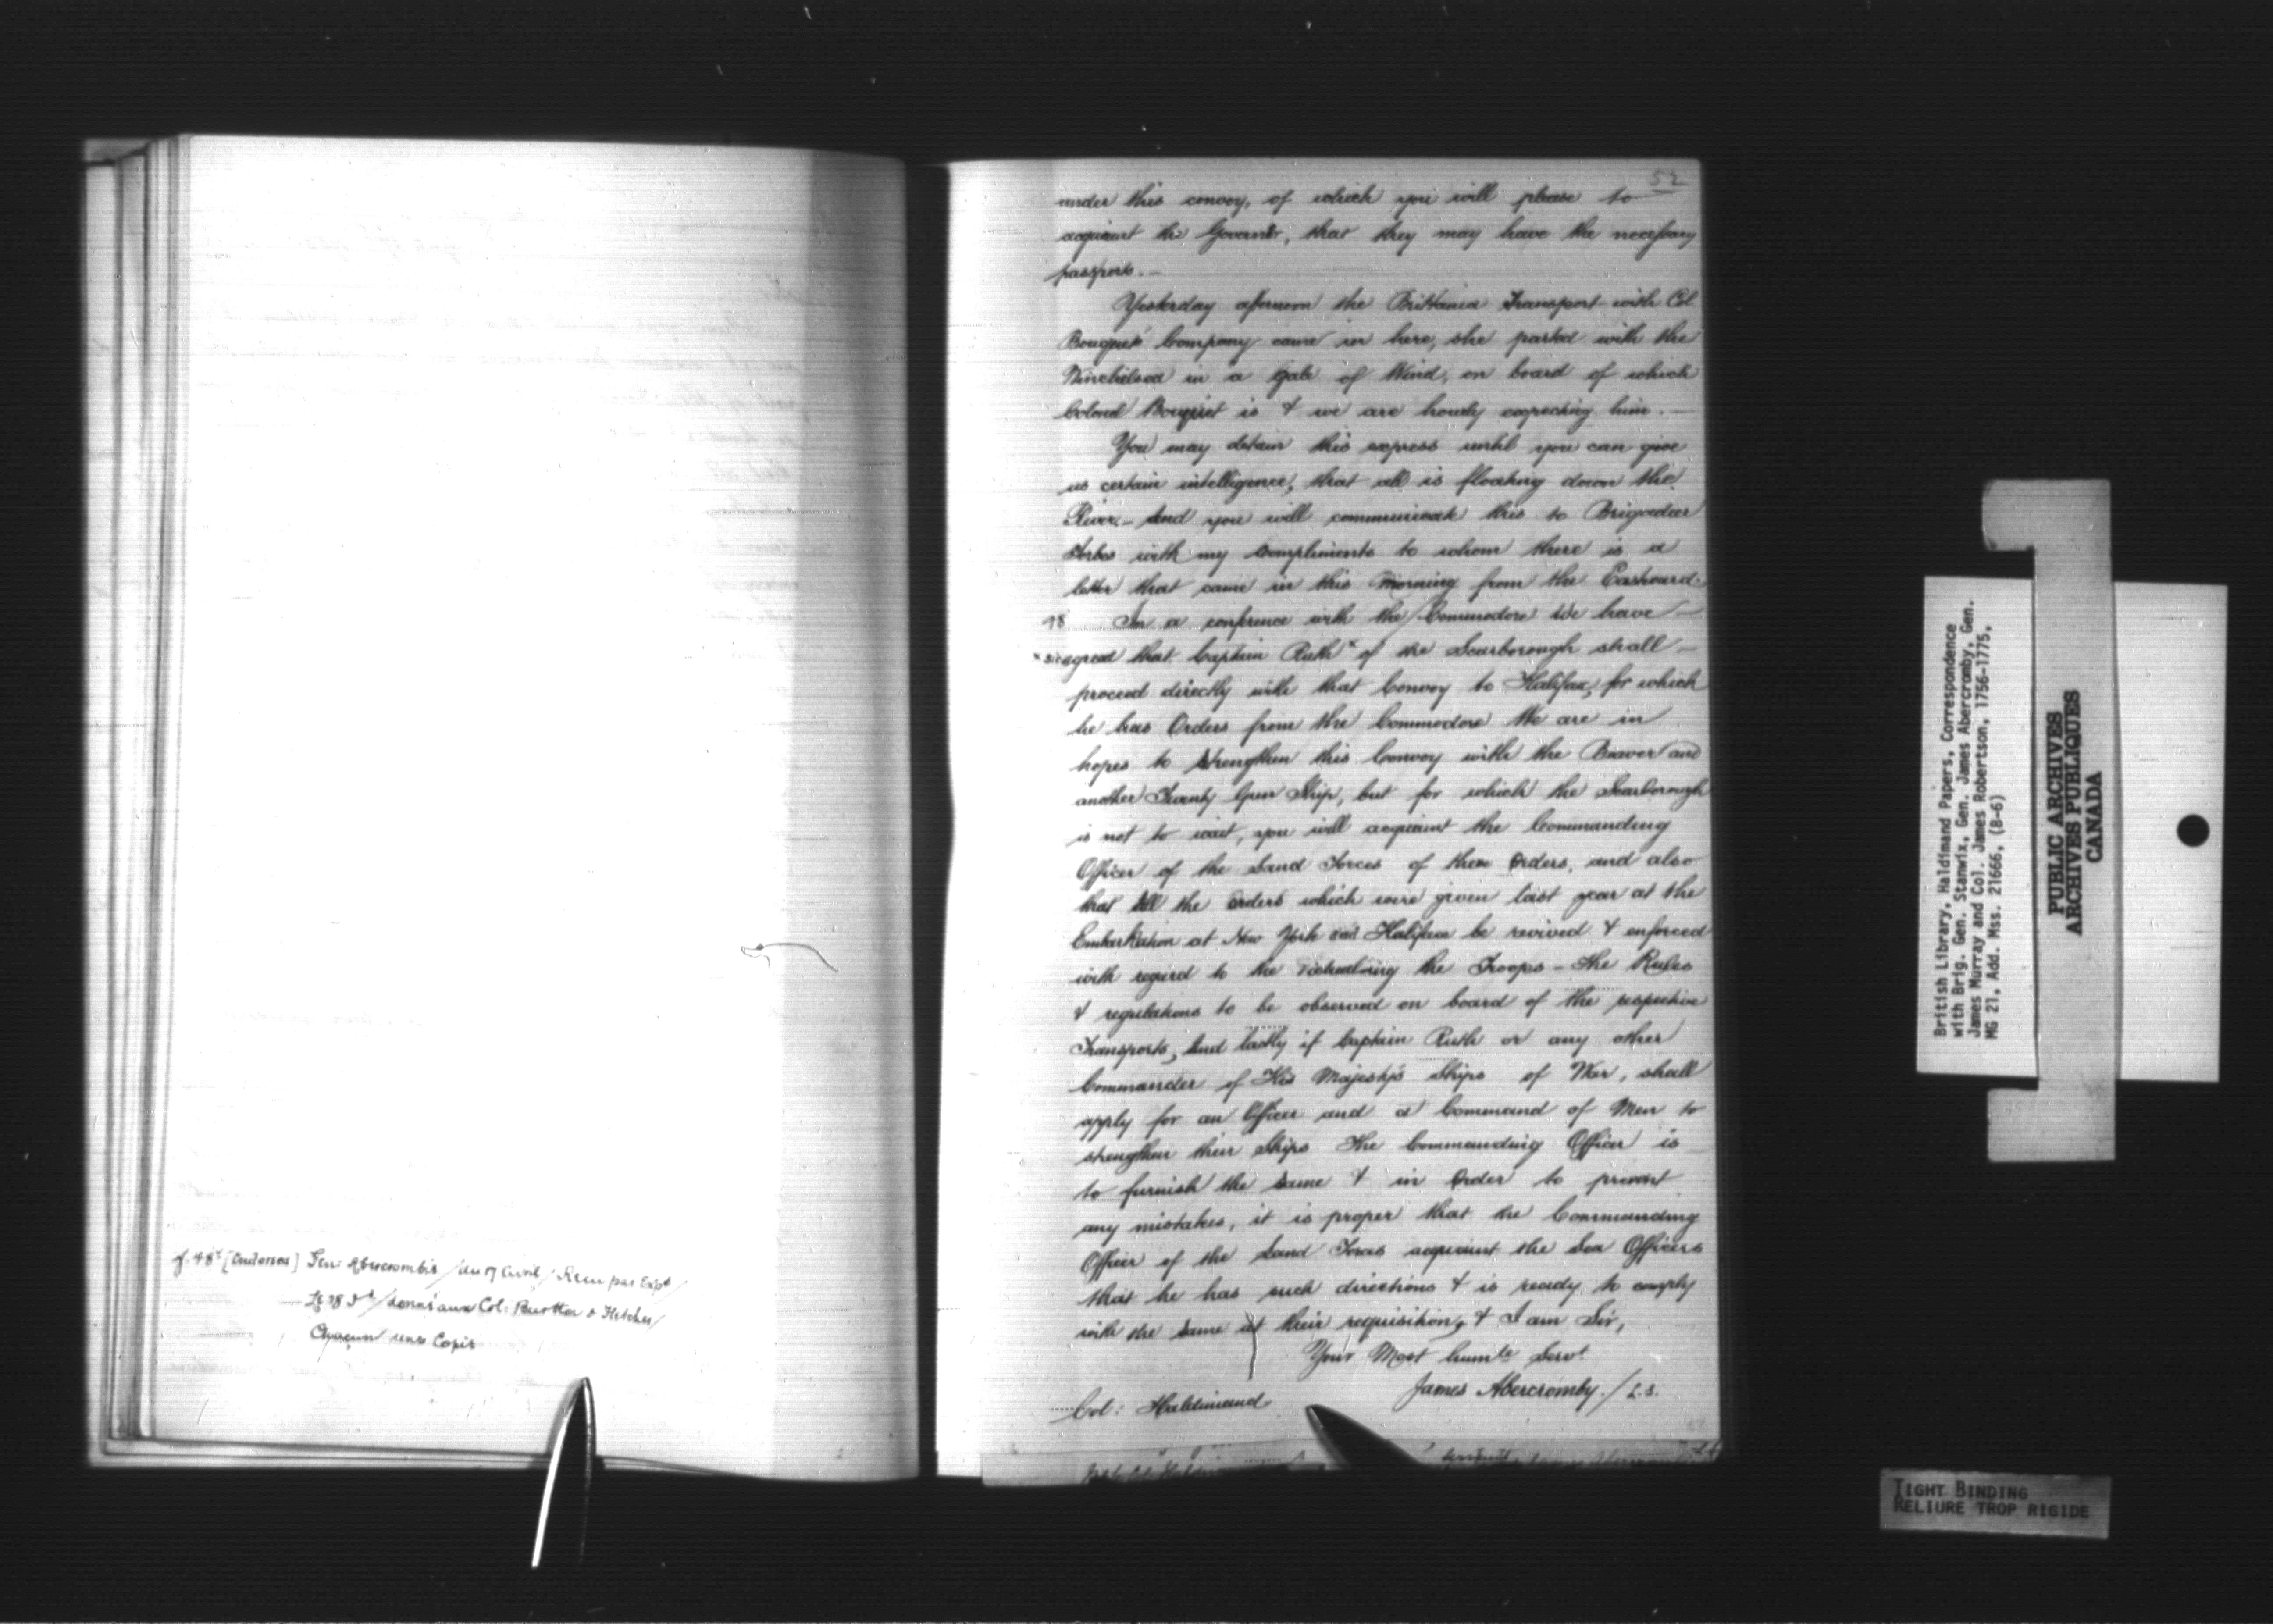 f. 48ᵛ [Endorsed] Gen: Abercrombie / du 17 Avril / Recu par Expˢ /
Le 18 Dᵗ / donné aux Col: Burtton & Fletcher /
Chacun une Copie
52
under this convoy, of which you will please to
acquaint the Governor, that they may have the necessary
passports. —
Yesterday afternoon the Brittania Transport with Col
Bouquet's Company came in here, she parted with the
Winchelsea in a Gale of Wind, on board of which
Colonel Bouquet is & we are hourly expecting him. —
You may detain this express until you can give
us certain intelligence, that all is floating down the
River. — And you will communicate this to Brigadier
Forbes with my compliments to whom there is a
letter that came in this morning from the Eastward.
48 In a conference with the / Commodore We have —
* sic agreed that Captain Ruth * of the Scarborough shall —
proceed directly with that Convoy to Halifax, for which
he has Orders from the Commodore We are in
hopes to strengthen this Convoy with the Beaver and
another Twenty Gun Ship, but for which the Scarborough
is not to wait, you will acquaint the Commanding
Officer of the Land Forces of these Orders, and also
that All the Orders which were given last year at the
Embarkation at New York and Halifax be revived & enforced
with regard to the victualling the Troops — The Rules
& regulations to be observed on board of the respective
Transports, And lastly if Captain Ruth or any other
Commander of His Majesty's Ships of War, shall
apply for an Officer and a Command of Men to
strengthen their Ships The Commanding Officer is
to furnish the Same & in Order to prevent
any mistakes, it is proper that the Commanding
Officer of the Land Forces acquaint the Sea Officers
that he has such directions & is ready to comply
with the Same at their requisition, & I am Sir,
Your Most humˡᵉ Servᵗ
James Abercromby. / L.S.
Col: Haldimand
British Library, Haldimand Papers, Correspondence
with Brig. Gen. Stanwix, Gen. James Abercromby, Gen.
James Murray and Col. James Robertson, 1756-1775,
MG 21, Add. Mss. 21666, (B-6)
PUBLIC ARCHIVES
ARCHIVES PUBLIQUES
CANADA
TIGHT BINDING
RELIURE TROP RIGIDE